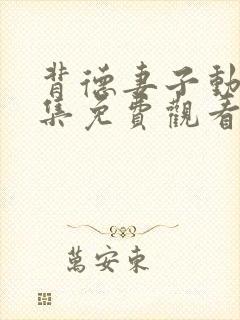 背德妻子動
集免費觀看
萬安東